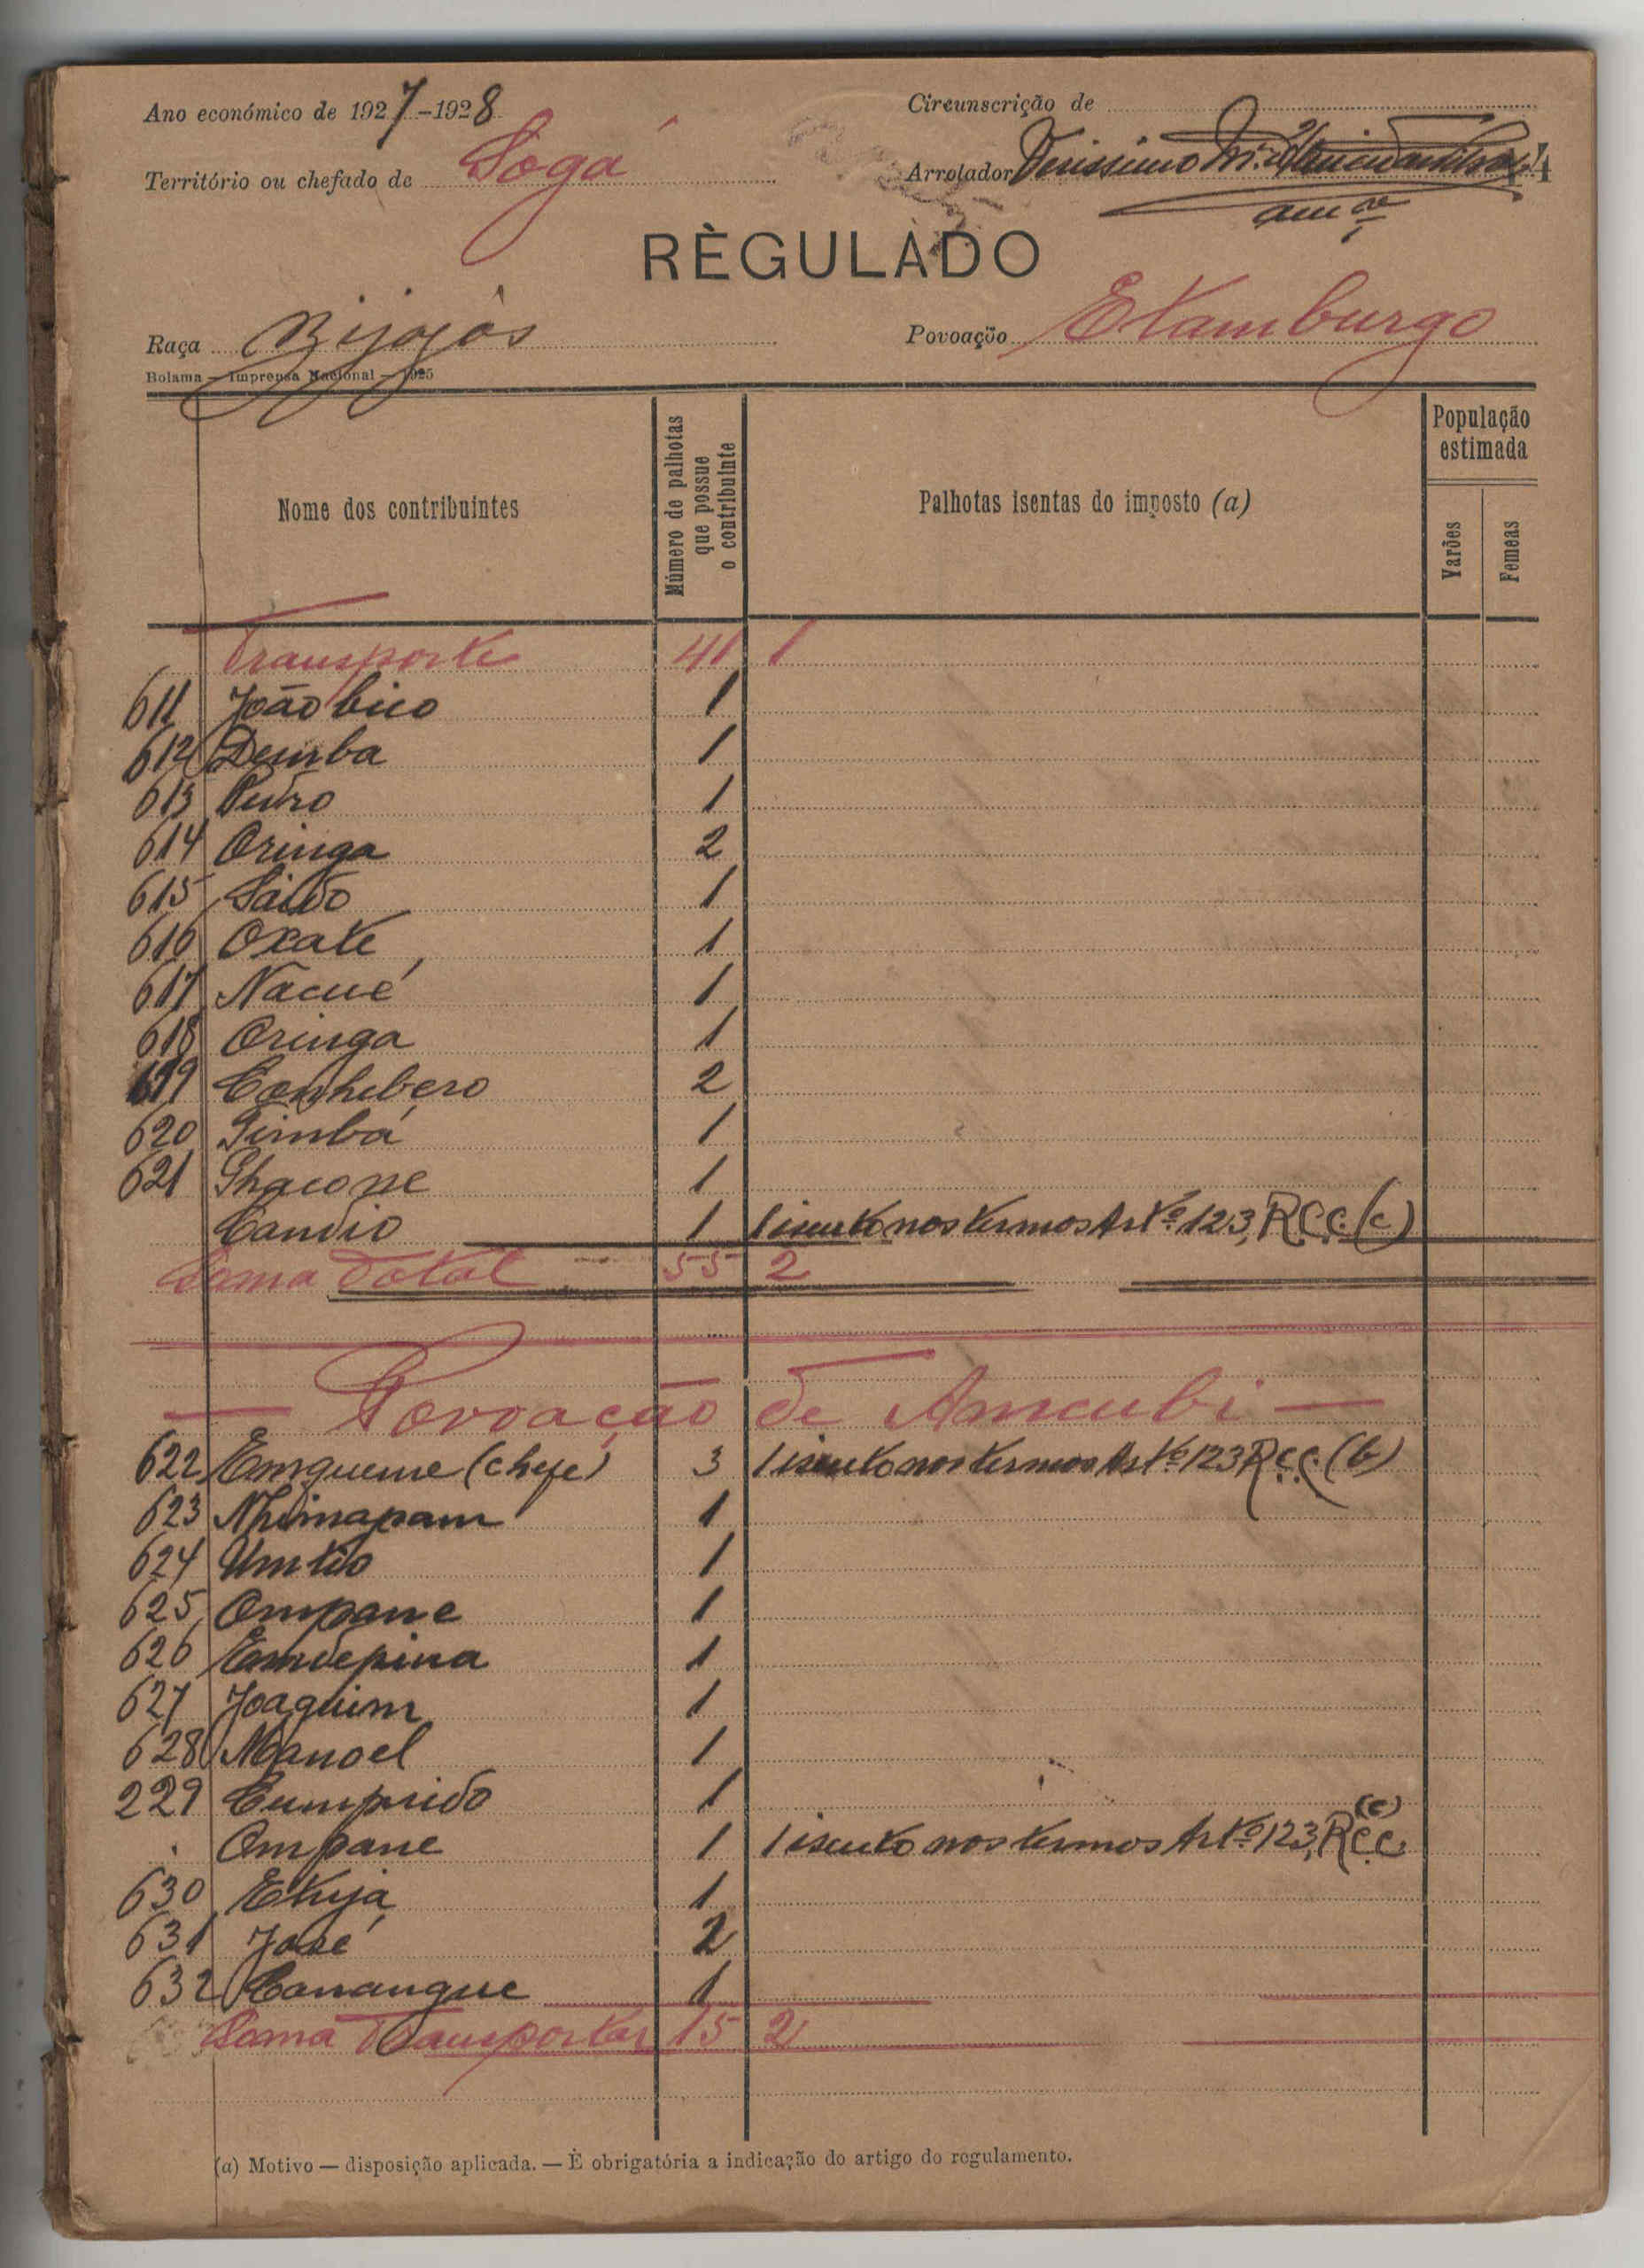 Ano económico de 1927-1928
Circunscrição de
Território ou chefado de Sogá
Arrolador Verissimo
44
RÈGULADO
Raça Bijagós
Povoação Etamburgo
Bolama — Imprensa Nacional — 1925
Nome dos contribuintes
Número de palhotas que possue o contribuinte
Palhotas isentas do imposto (a)
População estimada
Varões
Femeas
Transporte 41 1
611 João bico 1
612 Demba 1
613 Pedro 1
614 Oringa 2
615 Saido 1
616 Oxate 1
617 Nacué 1
618 Oringa 1
619 Canhebero 2
620 Simbá 1
621 1
Candio 1 1 isento nos termos Artº 123, R.C.C. (c)
Soma Total 55 2
— Povoação de Ameubi —
622 Emgueme (chefe) 3 1 isento nos termos Artº 123 R.C.C. (b)
623 Nhimapam 1
624 Umtio 1
625 Ompane 1
626 Emdepina 1
627 Joaquim 1
628 Manoel 1
229 Cumprido 1
Ompane 1 1 isento nos termos Artº 123, R.C.C. (c)
630 Etija 1
631 José 2
632 Canangue 1
Soma Transportar 15 2
(a) Motivo — disposição aplicada. — È obrigatória a indicação do artigo do regulamento.